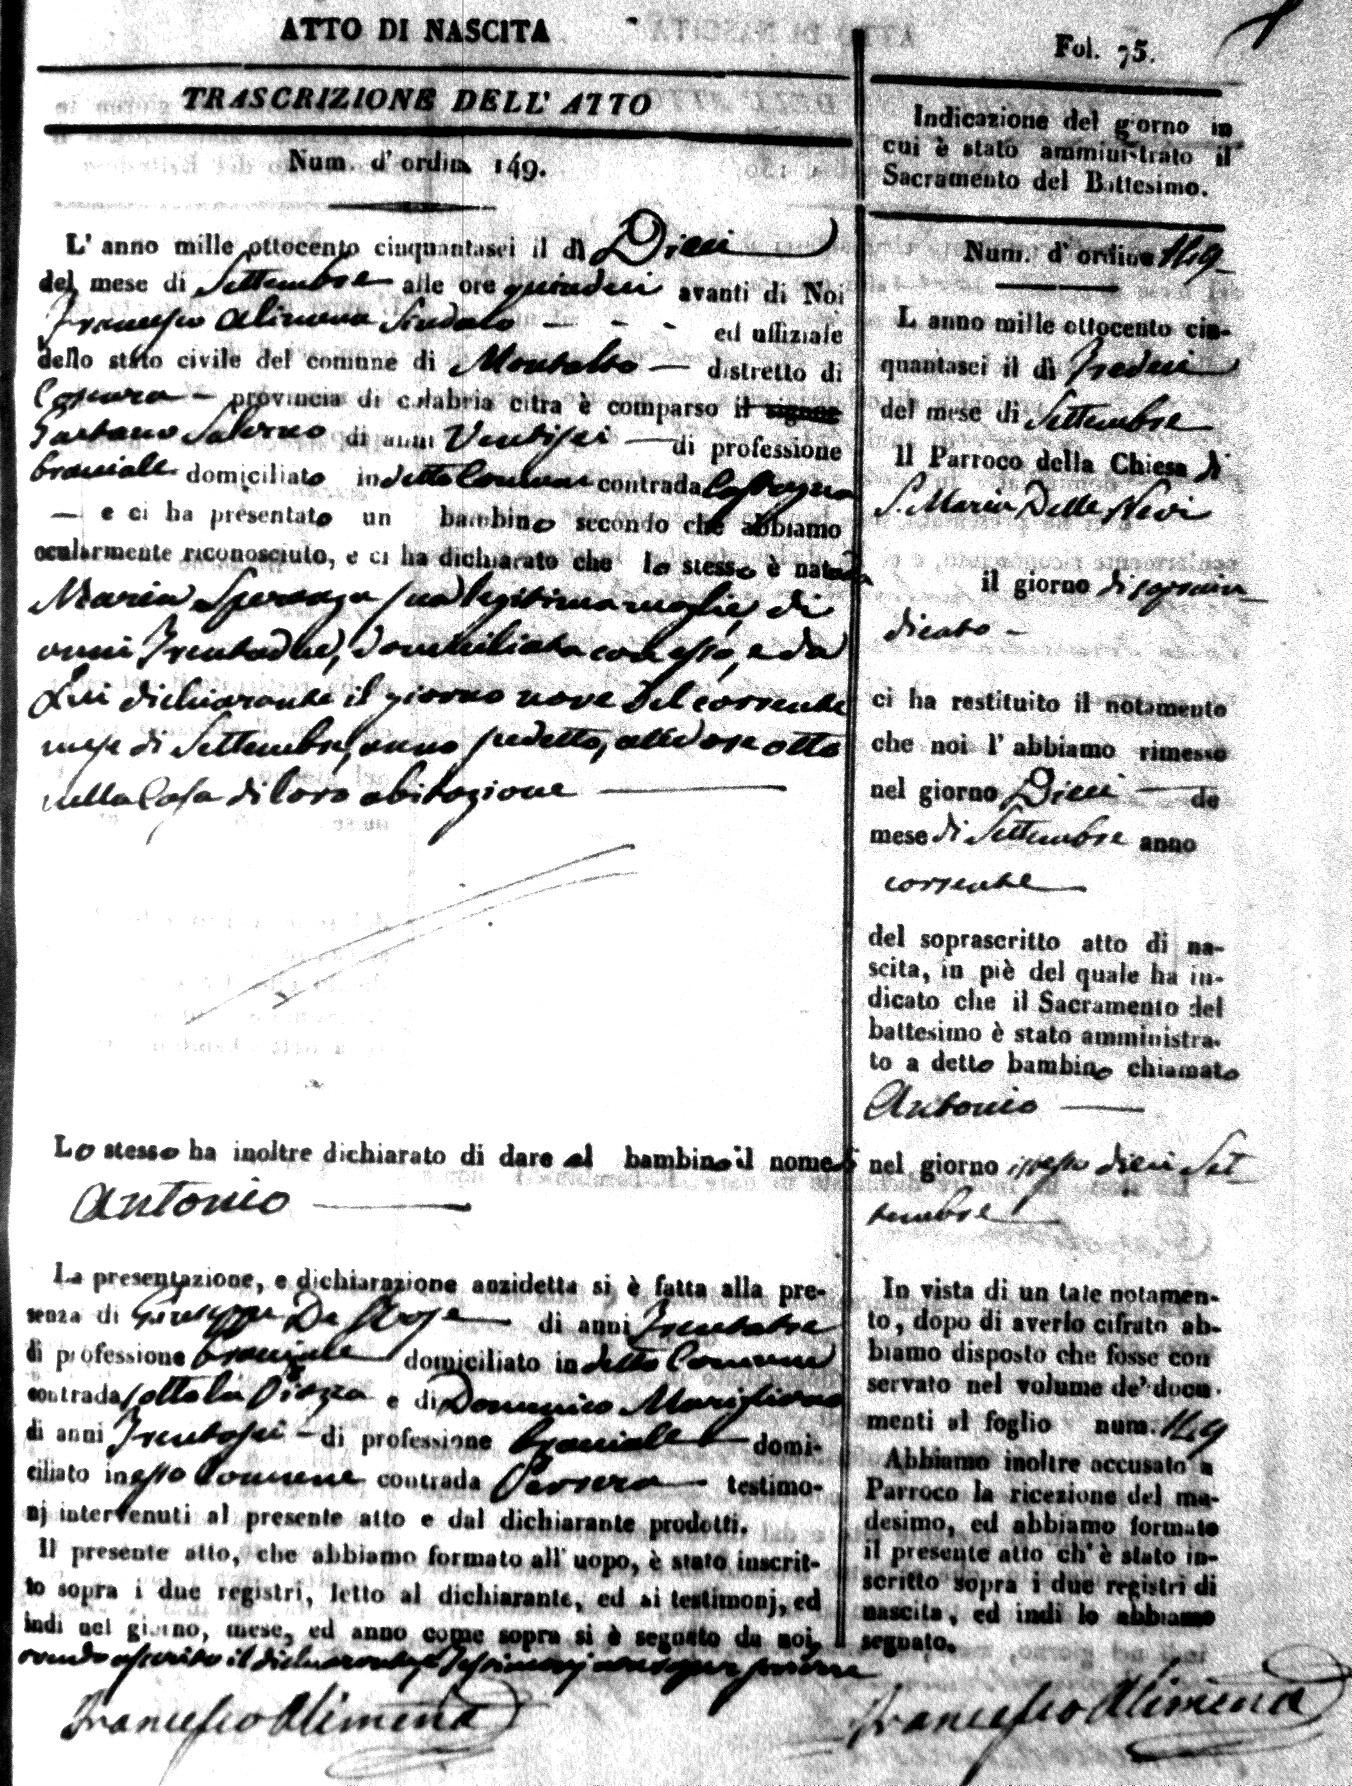 ATTO DI NASCITA
TRASCRIZIONE DELL' ATTO
Num. d' ordin 149.
L' anno mille ottocento cinquantasei il dì Dieci
del mese di Settembre alle ore quindici avanti di Noi
Francesco Alimena Sindaco ed uffiziale
dello stato civile del comune di Montalto distretto di
Cosenza provincia di calabria citra è comparso il
Gaetano Salerno di anni Ventisei di professione
bracciale domiciliato in detto Comune contrada
e ci ha presentato un bambino secondo che abbiamo
ocularmente riconosciuto, e ci ha dichiarato che lo stesso è nato da
Maria Speranza sua legitima moglie, di
anni Trentadue, domiciliata con esso, e da
Lui dichiarante il giorno nove del corrente
mese di Settembre, anno sudetto, alle ore otto
nella Casa di loro abitazione
Lo stesso ha inoltre dichiarato di dare al bambino il nome di
Antonio
La presentazione, e dichiarazione anzidetta si è fatta alla pre-
senza di Giuseppe De Rose di anni Trentatre
di professione bracciale domiciliato in detto Comune
contrada sotto la Piazza e di Domenico Marigliano
di anni Trentasei di professione bracciale domi-
ciliato in esso Comune contrada testimo-
nj intervenuti al presente atto e dal dichiarante prodotti.
Il presente atto, che abbiamo formato all' uopo, è stato inscrit-
to sopra i due registri, letto al dichiarante, ed ai testimonj, ed
indi nel giorno, mese, ed anno come sopra si è segnato da noi,
avendo asserito il dichiarante e Testimonj non saper scrivere
Francesco Alimena
Fol. 75.
Indicazione del giorno in
cui è stato amministrato il
Sacramento del Battesimo.
Num. d' ordine 149
L anno mille ottocento cin-
quantasei il dì Tredici
del mese di Settembre
Il Parroco della Chiesa di
S. Maria Delle Nevi
il giorno disoprain
dicato
ci ha restituito il notamento
che noi l' abbiamo rimesso
nel giorno Dieci de
mese di Settembre anno
corrente
del soprascritto atto di na-
scita, in piè del quale ha in-
dicato che il Sacramento del
battesimo è stato amministra-
to a detto bambino chiamato
Antonio
nel giorno istesso dieci Set
tembre
In vista di un tale notamen-
to, dopo di averlo cifrato ab-
biamo disposto che fosse con
servato nel volume de' docu-
menti al foglio num. 149
Abbiamo inoltre accusato a
Parroco la ricezione del me-
desimo, ed abbiamo formato
il presente atto ch' è stato in-
scritto sopra i due registri di
nascita, ed indi lo abbiamo
segnato.
Francesco Alimena